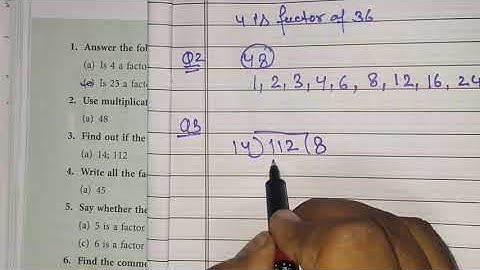 1. Answer the fol
(a) Is 4 a facto
(c) Is 23 a facto
2. Use multiplicat
(a) 48
3. Find out if the
(a) 14; 112
4. Write all the fa
(a) 45
5. Say whether the
(a) 5 is a factor
(c) 6 is a factor
6. Find the comme
4 is factor of 36
Q2 48
1, 2, 3, 4, 6, 8, 12, 16, 24
Q3
14)112(8